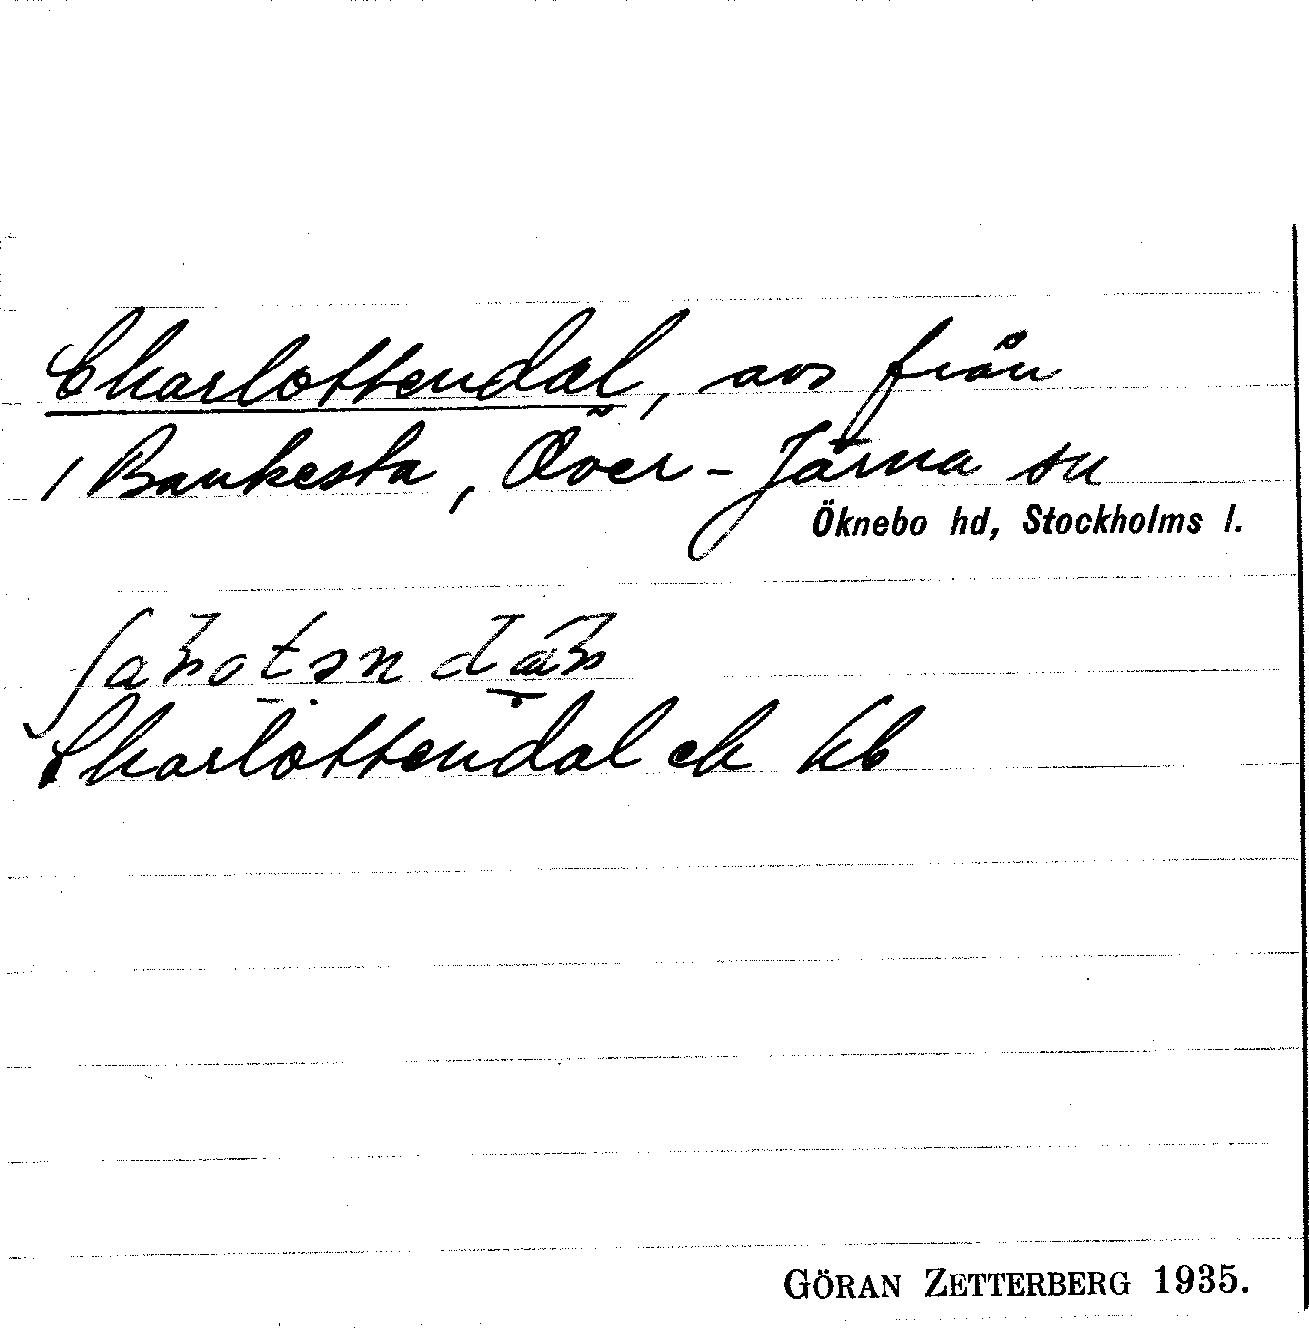 Charlottendal, avs från
1 Bankesta, Över-Järna sn
Öknebo hd, Stockholms l.
Charlottendal ek kb
GÖRAN ZETTERBERG 1935.